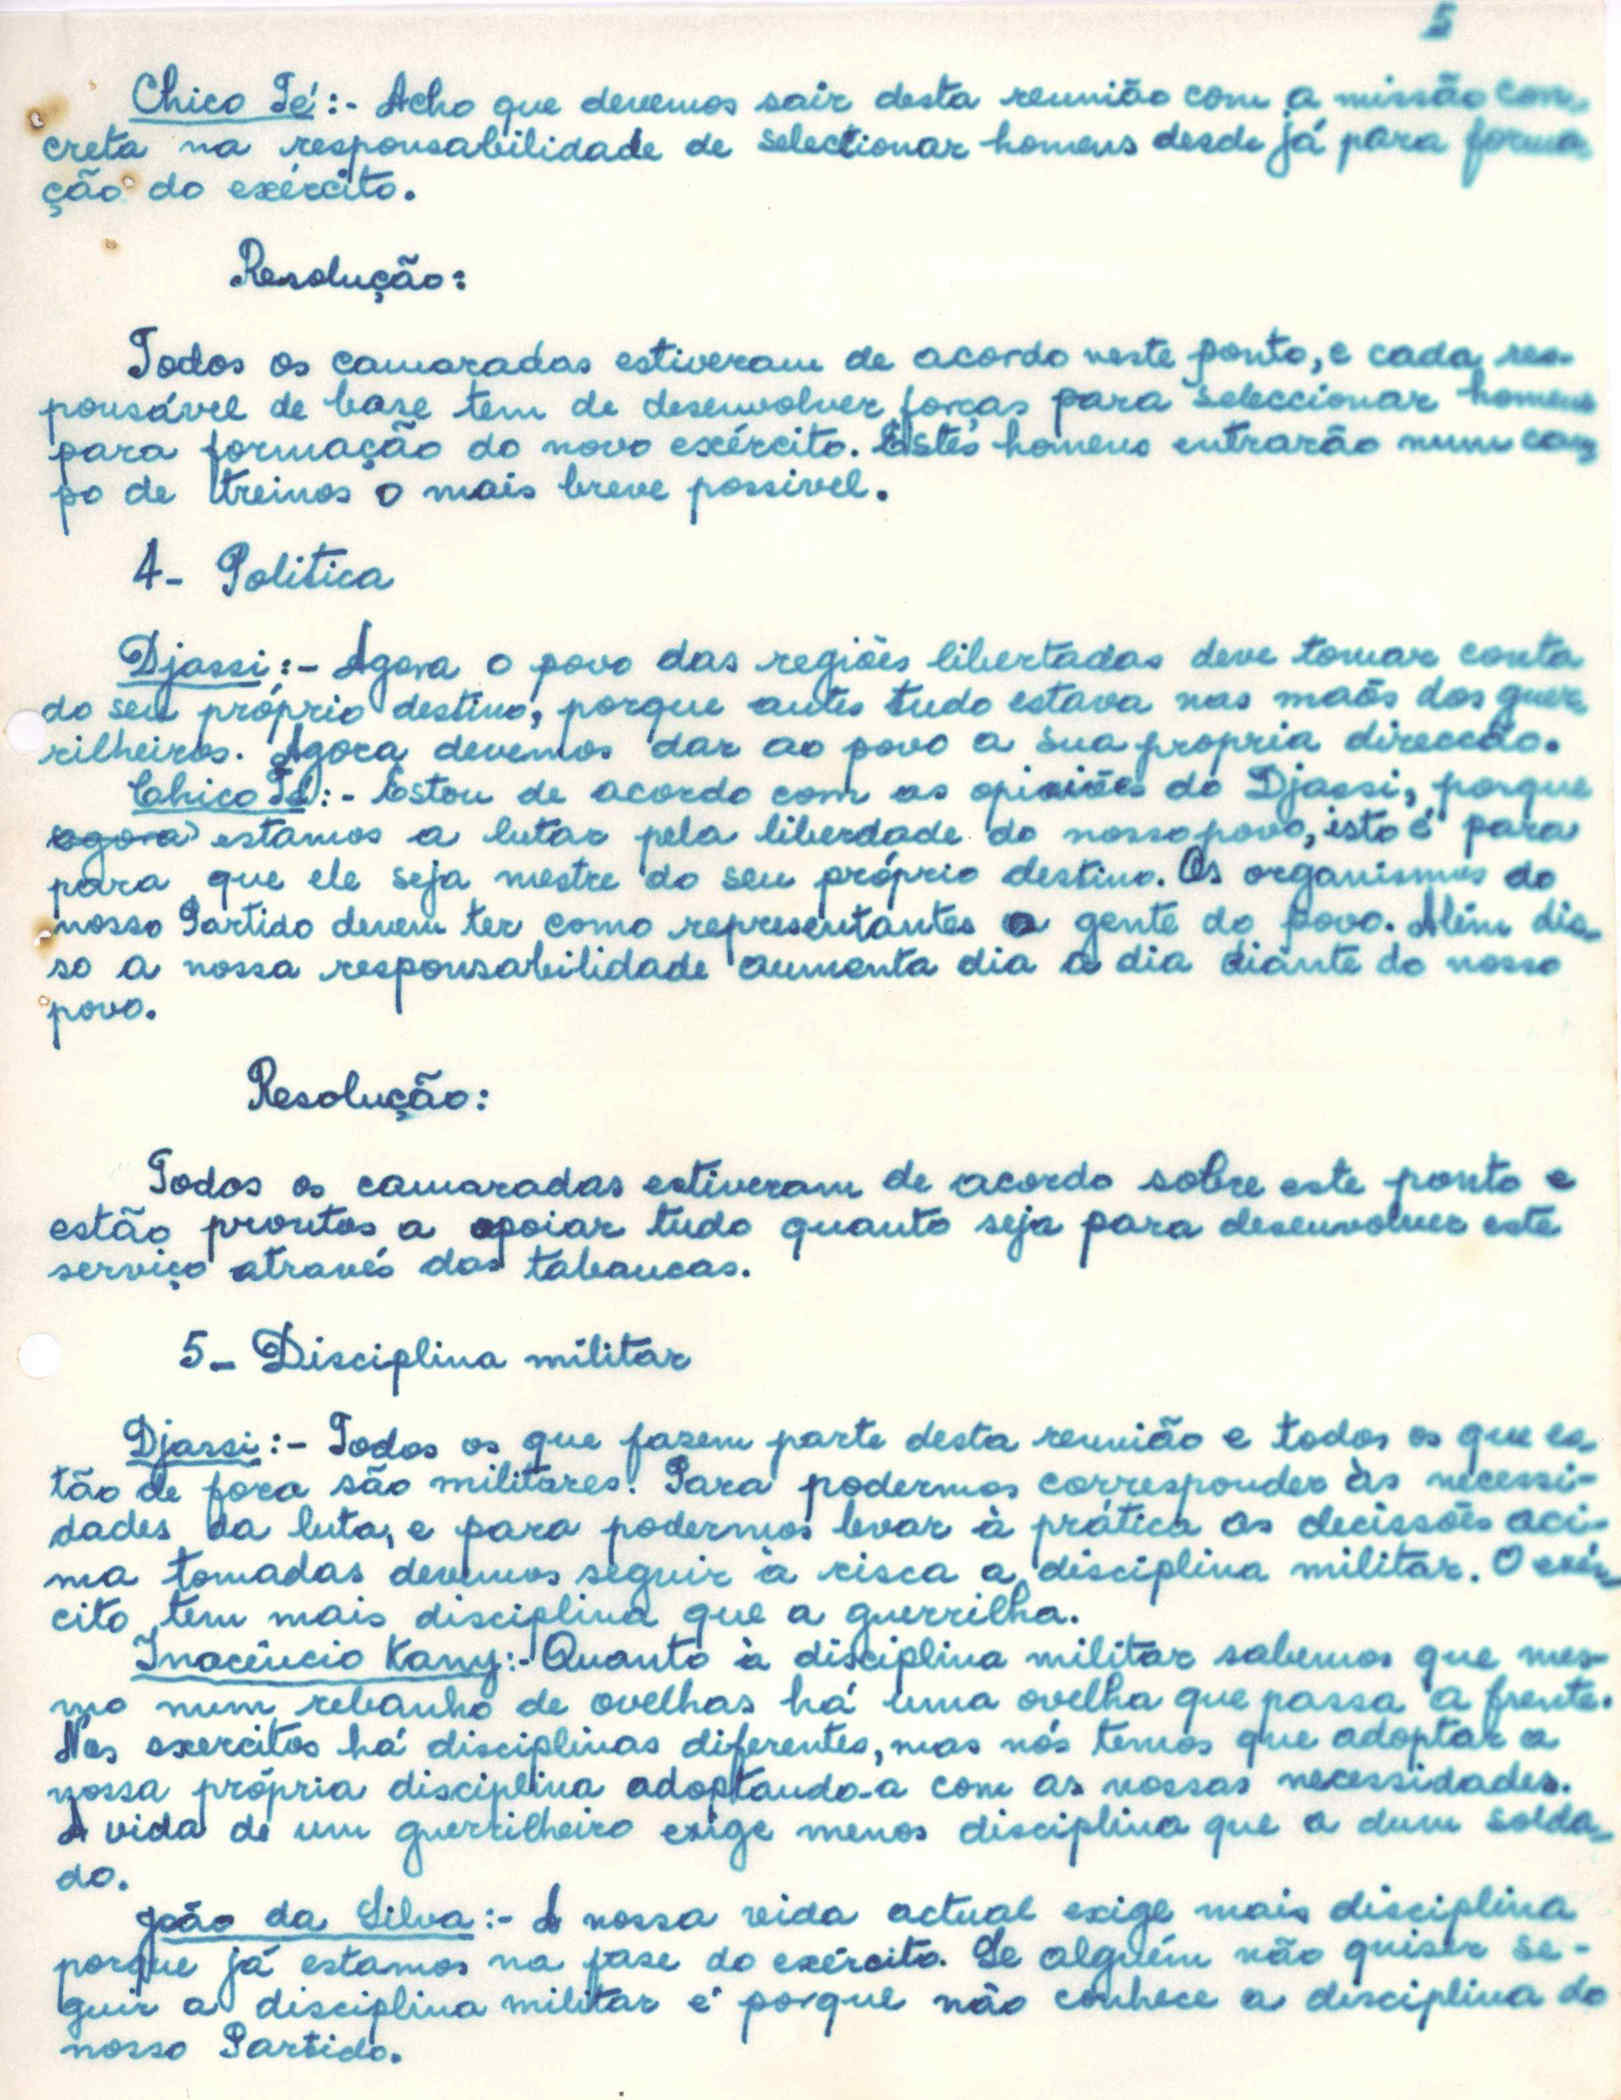 5
Chico Té:- Acho que devemos sair desta reunião com a missão con-
creta na responsabilidade de selectionar homens desde já para forma-
ção do exército.
Resolução:
Todos os camaradas estiveram de acordo neste ponto, e cada res-
ponsável de base tem de desenvolver forças para seleccionar homens
para formação do novo exército. Estes homens entrarão num cam-
po de treinos o mais breve possivel.
4- Politica
Djassi:- Agora o povo das regiões libertadas deve tomar conta
do seu próprio destino, porque antes tudo estava nas maõs dos guer-
rilheiros. Agora devemos dar ao povo a sua propria direccão.
Chico Té:- Estou de acordo com as opiniões do Djassi, porque
agora estamos a lutar pela liberdade do nosso povo, isto é para
para que ele seja mestre do seu próprio destino. Os organismos do
nosso Partido devem ter como representantes a gente do povo. Além dis-
so a nossa responsabilidade aumenta dia a dia diante do nosso
povo.
Resolução:
Todos os camaradas estiveram de acordo sobre este ponto e
estão prontos a apoiar tudo quanto seja para desenvolver este
serviço através das tabancas.
5- Disciplina militar
Djassi:- Todos os que fazem parte desta reunião e todos os que es-
tão de fora são militares. Para podermos corresponder às necessi-
dades da luta, e para podermos levar à prática as decissões aci-
ma tomadas devemos seguir à risca a disciplina militar. O exér-
cito tem mais disciplina que a guerrilha.
Inacêncio Kany:- Quanto à disciplina militar sabemos que mes-
mo num rebanho de ovelhas há uma ovelha que passa a frente.
Nos exercitos há disciplinas diferentes, mas nós temos que adoptar a
nossa própria disciplina adoptando-a com as nossas necessidades.
A vida de um guerrilheiro exige menos disciplina que a dum solda-
do.
João da Silva:- A nossa vida actual exige mais disciplina
porque já estamos na fase do exército. Se alguém não quiser se-
guir a disciplina militar é porque não conhece a disciplina do
nosso Partido.